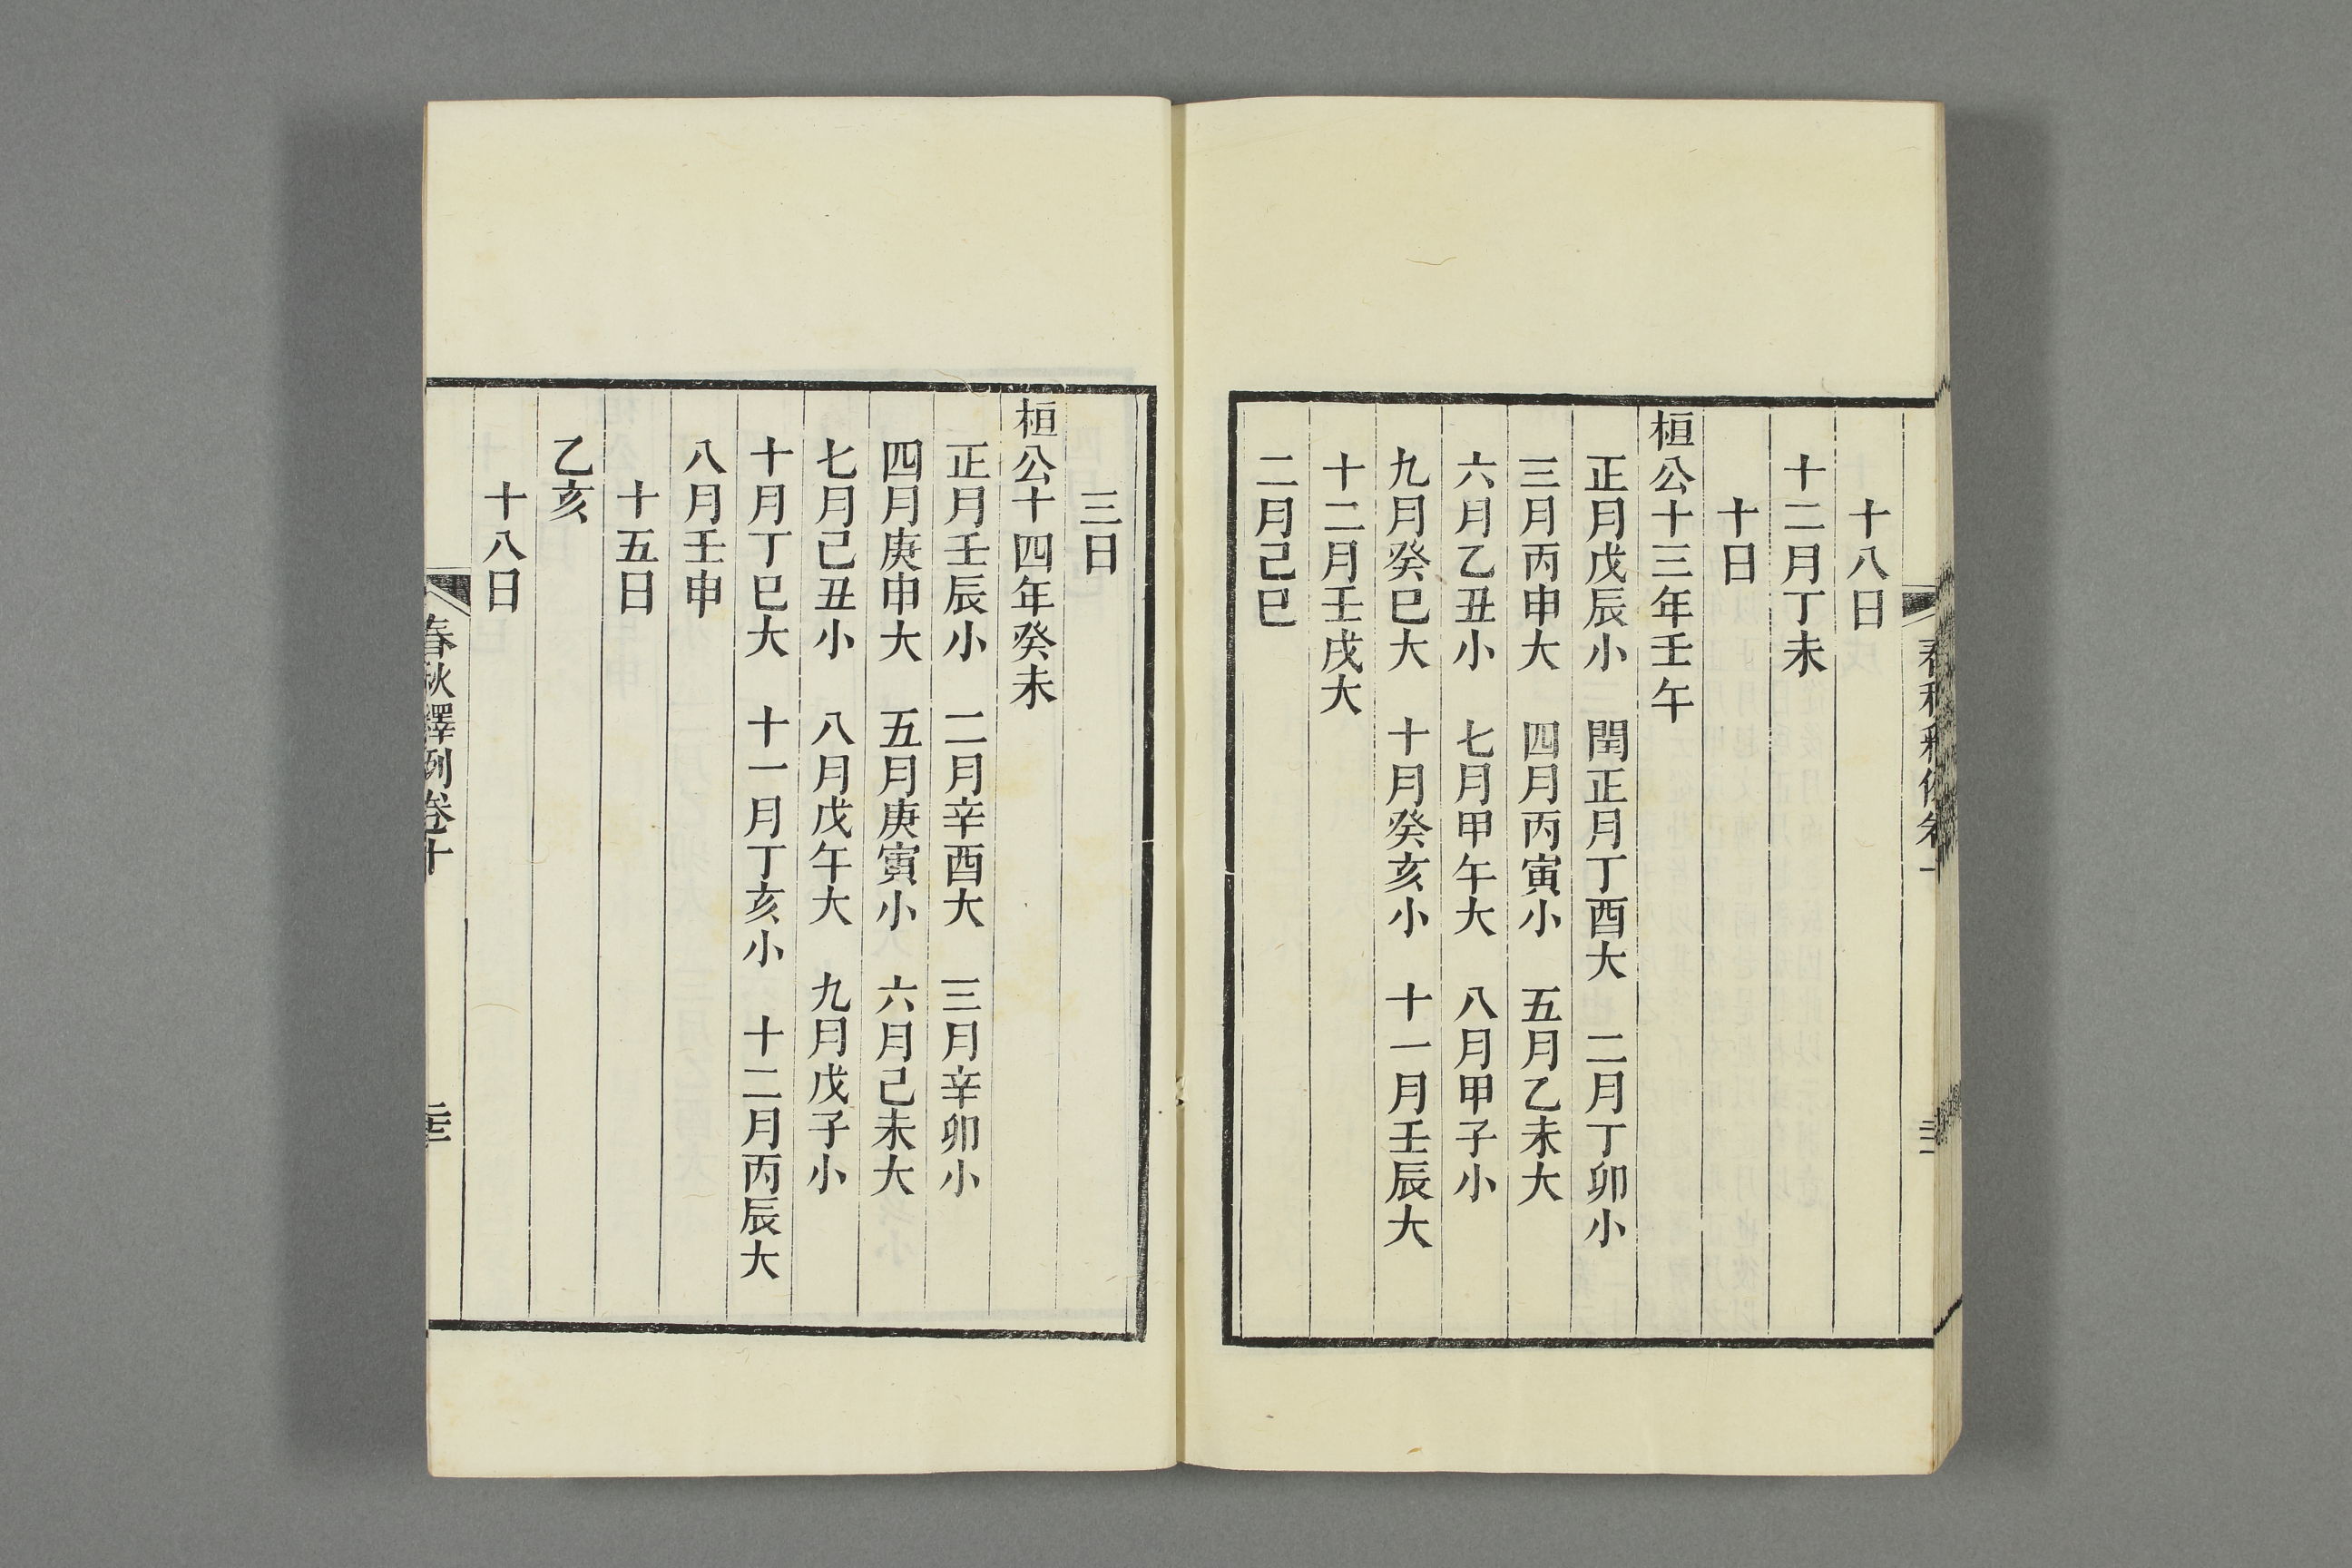 十八日
十二月丁未
十日
桓公十三年壬午
正月戊辰小　閏正月丁酉大　二月丁卯小
三月丙申大　四月丙寅小　五月乙未大
六月乙丑小　七月甲午大　八月甲子小
九月癸巳大　十月癸亥小　十一月壬辰大
十二月壬戌大
二月己巳
三日
桓公十四年癸未
正月壬辰小　二月辛酉大　三月辛卯小
四月庚申大　五月庚寅小　六月己未大
七月己丑小　八月戊午大　九月戊子小
十月丁巳大　十一月丁亥小　十二月丙辰大
八月壬申
十五日
乙亥
十八日
春秋釋例卷十